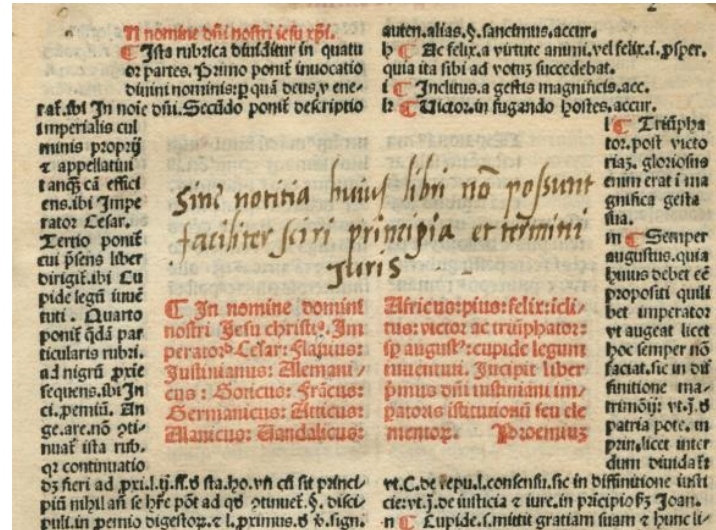 2
In nomine dñi nostri iesu xp̃i.
¶ Ista rubrica diuiditur in quatu
or partes. Primo ponit̃ inuocatio
diuini nominis: ꝑ quã deus, ꝟ ene-
rat̃. ibi In noĩe dñi. Secũdo ponit̃ descriptio
imperialis cul
minis proprij
⁊ appellatiui
tanqꝫ cã effici
ens. ibi Impe
rator Cesar.
Tertio ponit̃
cui p̃sens liber
dirigit̃. ibi Cu
pide legũ iuuẽ
tuti. Quarto
ponit̃ q̃dã par
ticularis rubri.
ad nigrũ ꝓxie
sequens. ibi In
ci. ꝓemiũ. An
ge. are. nõ ꝯti-
nuat̃ ista rub.
qꝛ continuatio
dꝫ fieri ad ꝓxi. l. tj. ff. ď sta. ho. vñ cũ sit princi-
piũ nihil añ se hr̃e põt ad qď ꝯtinuet̃. §. disci-
puli. in ꝓemio digestoꝝ. ⁊ l. ꝓximus. ď ꝟ. sign.
auten. alias. §. sancimus. accur.
h ¶ Ac felix. a virtute animi. vel felix. i. ꝓsper.
quia ita sibi ad votuꝫ succedebat.
i ¶ Inclitus. a gestis magnificis. acc.
k ¶ Uictor. in fugando hostes. accur.
l ¶ Triũpha
tor. post victo
riaꝫ. gloriosus
enim erat i ma
gnifica gesta
sua.
m ¶ Semper
augustus. quia
huius debet eẽ
propositi quili
bet imperator
vt augeat licet
hoc semper nõ
faciat. sic in dif
finitione ma-
trimoij: vt. j. ď
patria pote. in
prin. licet inter
dum diuidat̃
vt. C. de repu. l. consensu. sic in diffinitione iusti
cie: vt. j. de iusticia ⁊ iure. in prĩcipio ẜꝫ Joan.
n ¶ Cupide. s. mittit gratiam suam ⁊ hunc li-
Sine notitia huius libri nõ possunt
faciliter sciri principia et termini
Juris
¶ In nomine domini
nostri Jesu christꝰ. Im
peratorᵇ Cesar: Flauius:
Justinianus: Alemani/
cus: Goticus: Frãcus:
Germanicus: Atticus:
Alanicus: Uandalicus:
Africus: pius: felix: icli/
tus: victor ac triũphator:
sꝑ augustꝰ: cupide legum
iuuentuti. Incipit liber
p̃mus dñi iustiniani im/
patoris istitutionũ seu ele
mentoꝝ. Proemiuꝫ